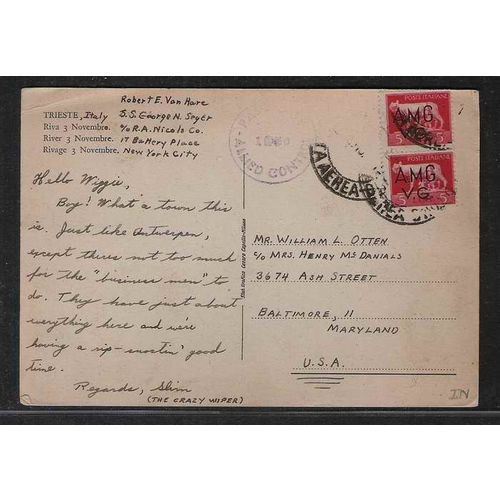 Robert E. Van Hare
TRIESTE, Italy
S.S. George N. Seger
Riva 3 Novembre.
c/o R.A. Nicols Co.
River 3 Novembre.
17 Battery Place
Rivage 3 Novembre.
New York City
Hello Wiggie,
Boy! What a town this
is. Just like Antwerpen,
except theres not too much
for the "business men" to
do. They have just about
everything here and we're
having a rip-snortin' good
time.
Regards, Slim
(THE CRAZY WIPER)
ALLIED
POSTE ITALIANE
AMG
5
POSTE ITALIANE
AMG
V.G.
5
MR. WILLIAM L. OTTEN
c/o MRS. HENRY McDANIALS
3674 ASH STREET
BALTIMORE, 11
MARYLAND
U.S.A.
IN